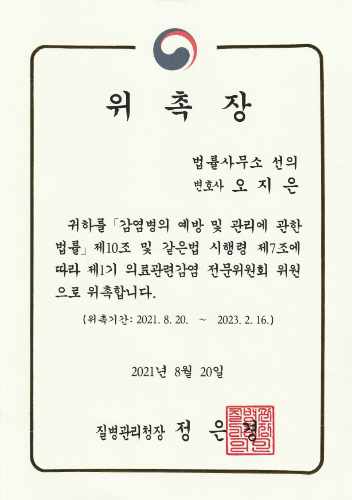 위 촉 장
법률사무소 선의
변호사 오 지 은
귀하를 「감염병의 예방 및 관리에 관한
법률」 제10조 및 같은법 시행령 제7조에
따라 제1기 의료관련감염 전문위원회 위원
으로 위촉합니다.
(위촉기간: 2021. 8. 20. ~ 2023. 2. 16.)
2021년 8월 20일
질병관리청장 정 은 경